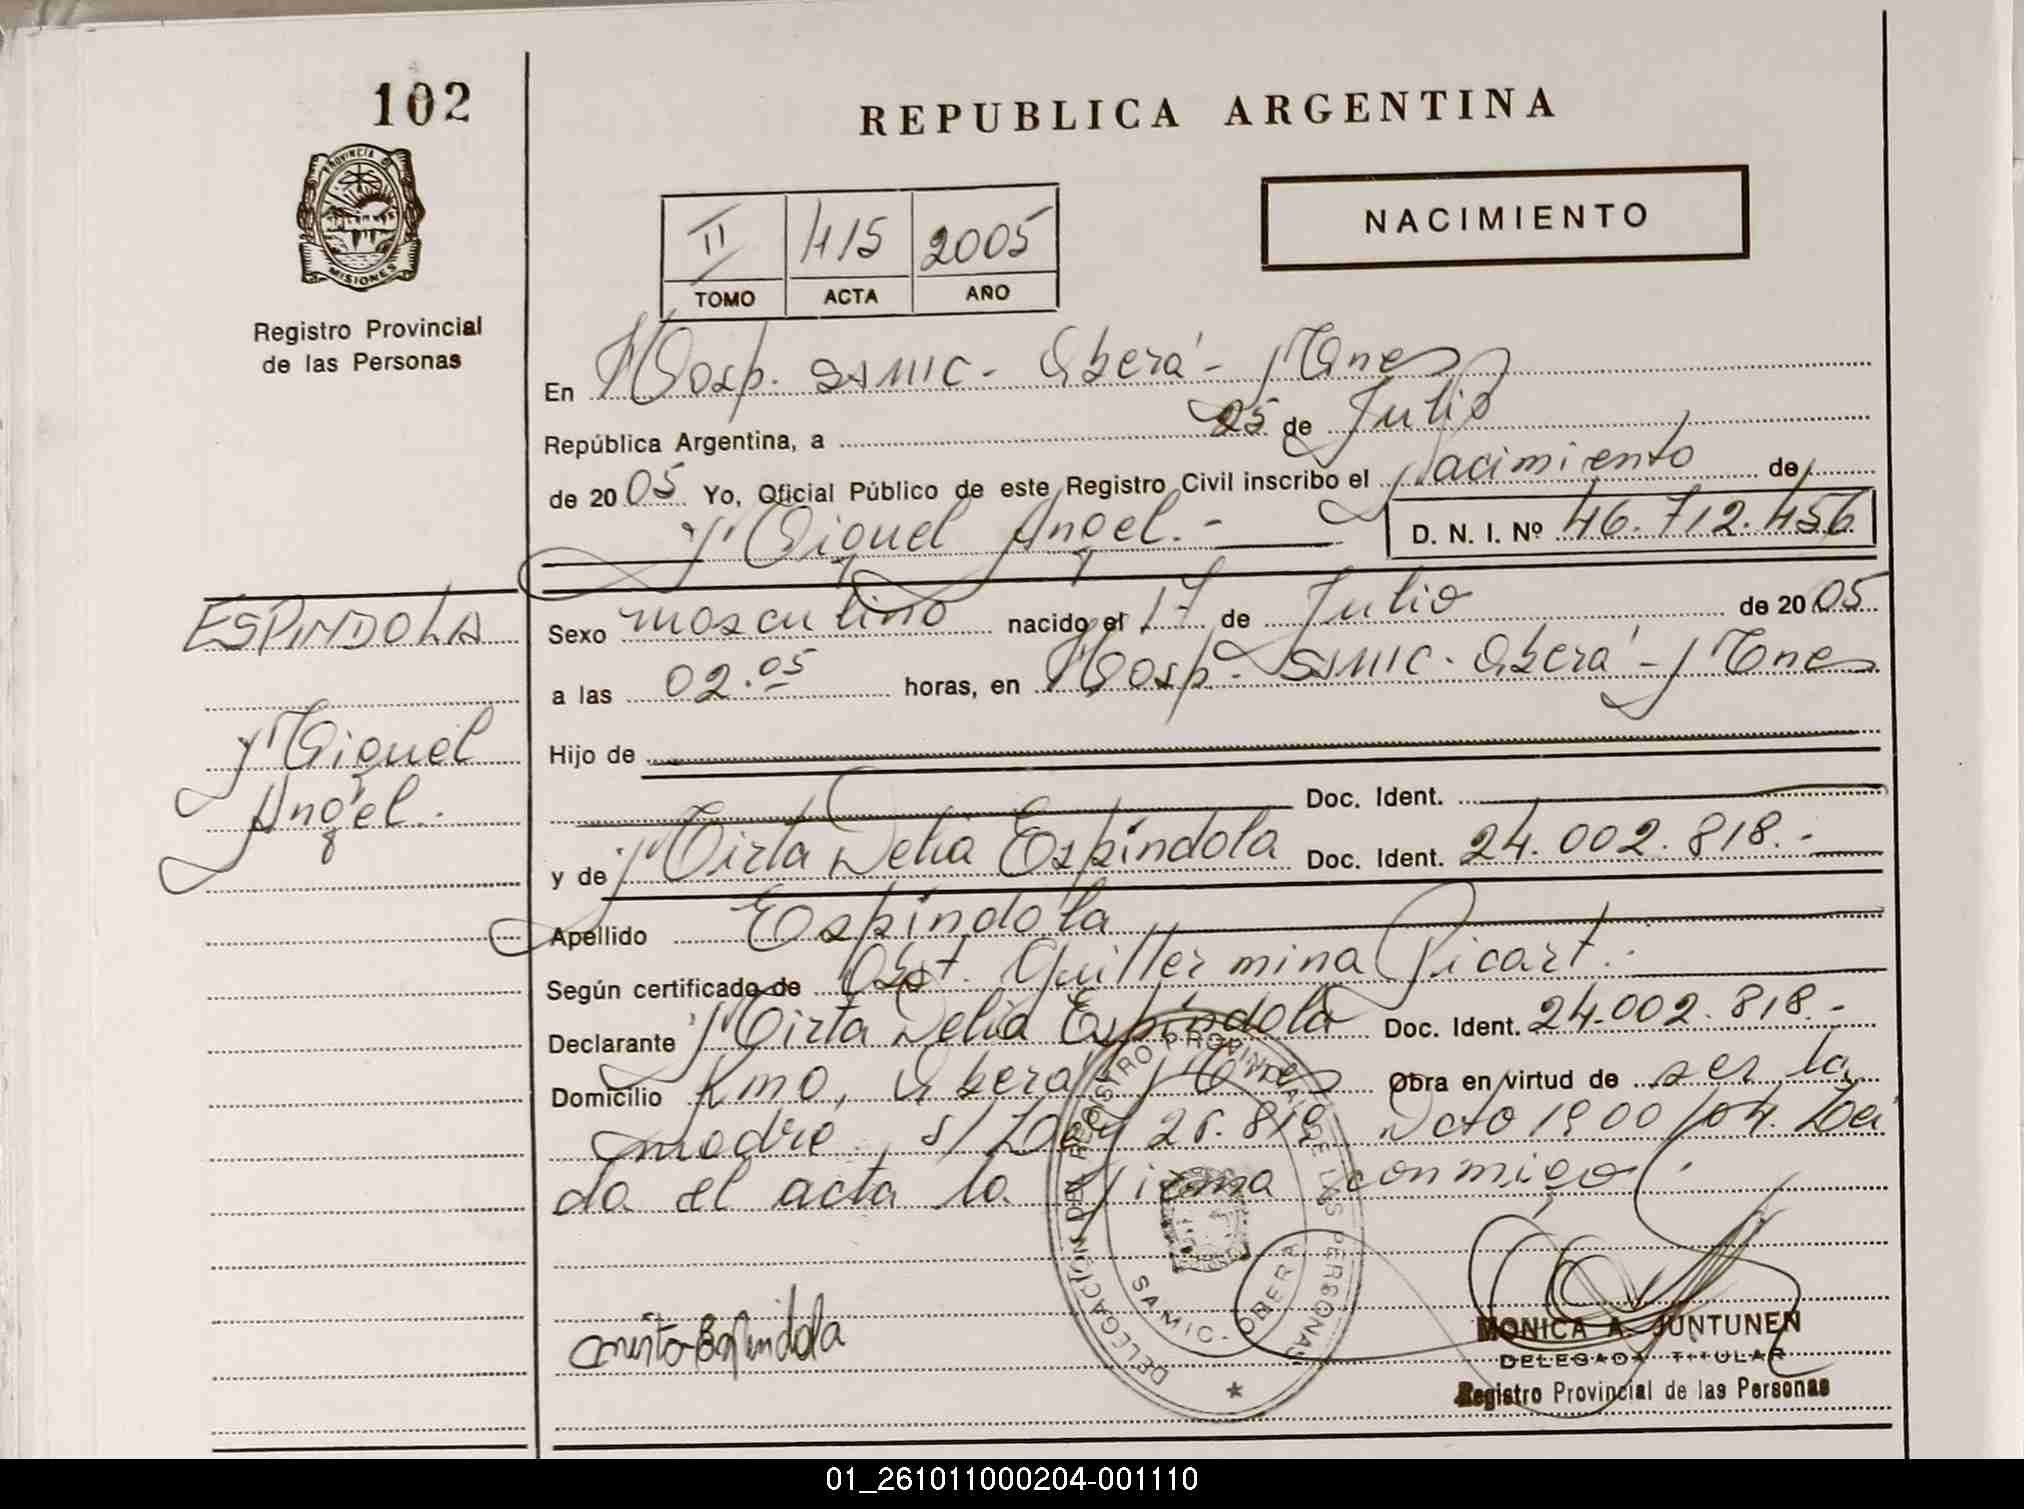 102
PROVINCIA DE
MISIONES
Registro Provincial
de las Personas
REPUBLICA ARGENTINA
II 415 2005
TOMO ACTA AÑO
NACIMIENTO
En Hosp. SAMIC - Oberá - Mnes
República Argentina, a 25 de Julio
de 2005 Yo, Oficial Público de este Registro Civil inscribo el Nacimiento de
Miguel Angel.- D. N. I. Nº 46.712.456
ESPINDOLA
Miguel
Angel.
Sexo masculino nacido el 17 de Julio de 2005
a las 02.05 horas, en Hosp. SAMIC - Oberá - Mnes
Hijo de
Doc. Ident.
y de Mirta Delia Espíndola Doc. Ident. 24.002.818.-
Apellido Espíndola
Según certificado de Obst. Guillermina Picart.
Declarante Mirta Delia Espíndola Doc. Ident. 24.002.818.-
Domicilio Km 0, Oberá, Mnes Obra en virtud de ser la
madre, s/ Ley 26.819 Dcto 1900/04. Leí
da el acta la firma conmigo.
DELEGACIÓN DEL REGISTRO PROVINCIAL DE LAS PERSONAS
SAMIC - OBERA
Mirta Espindola
MONICA A. JUNTUNEN
DELEGADA TITULAR
Registro Provincial de las Personas
01_261011000204-001110